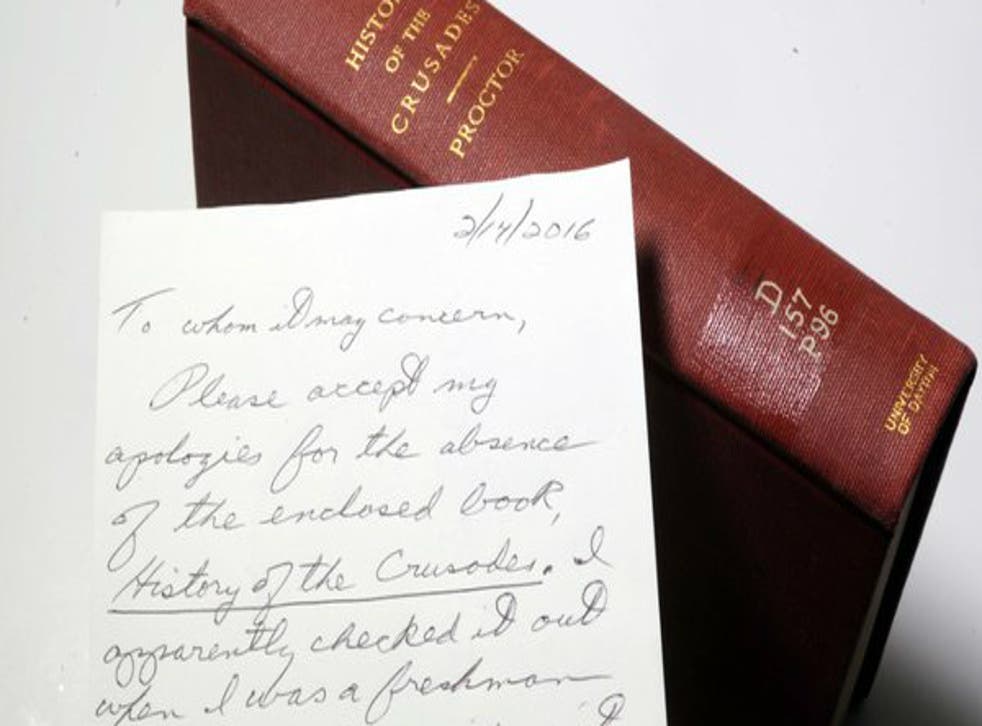 HISTO
OF THE
CRUSADES
PROCTOR
D
157
P96
UNIVERSITY
OF DAYTON
2/14/2016
To whom it may concern,
Please accept my
apologies for the absence
of the enclosed book,
History of the Crusades. I
apparently checked it out
when I was a freshman